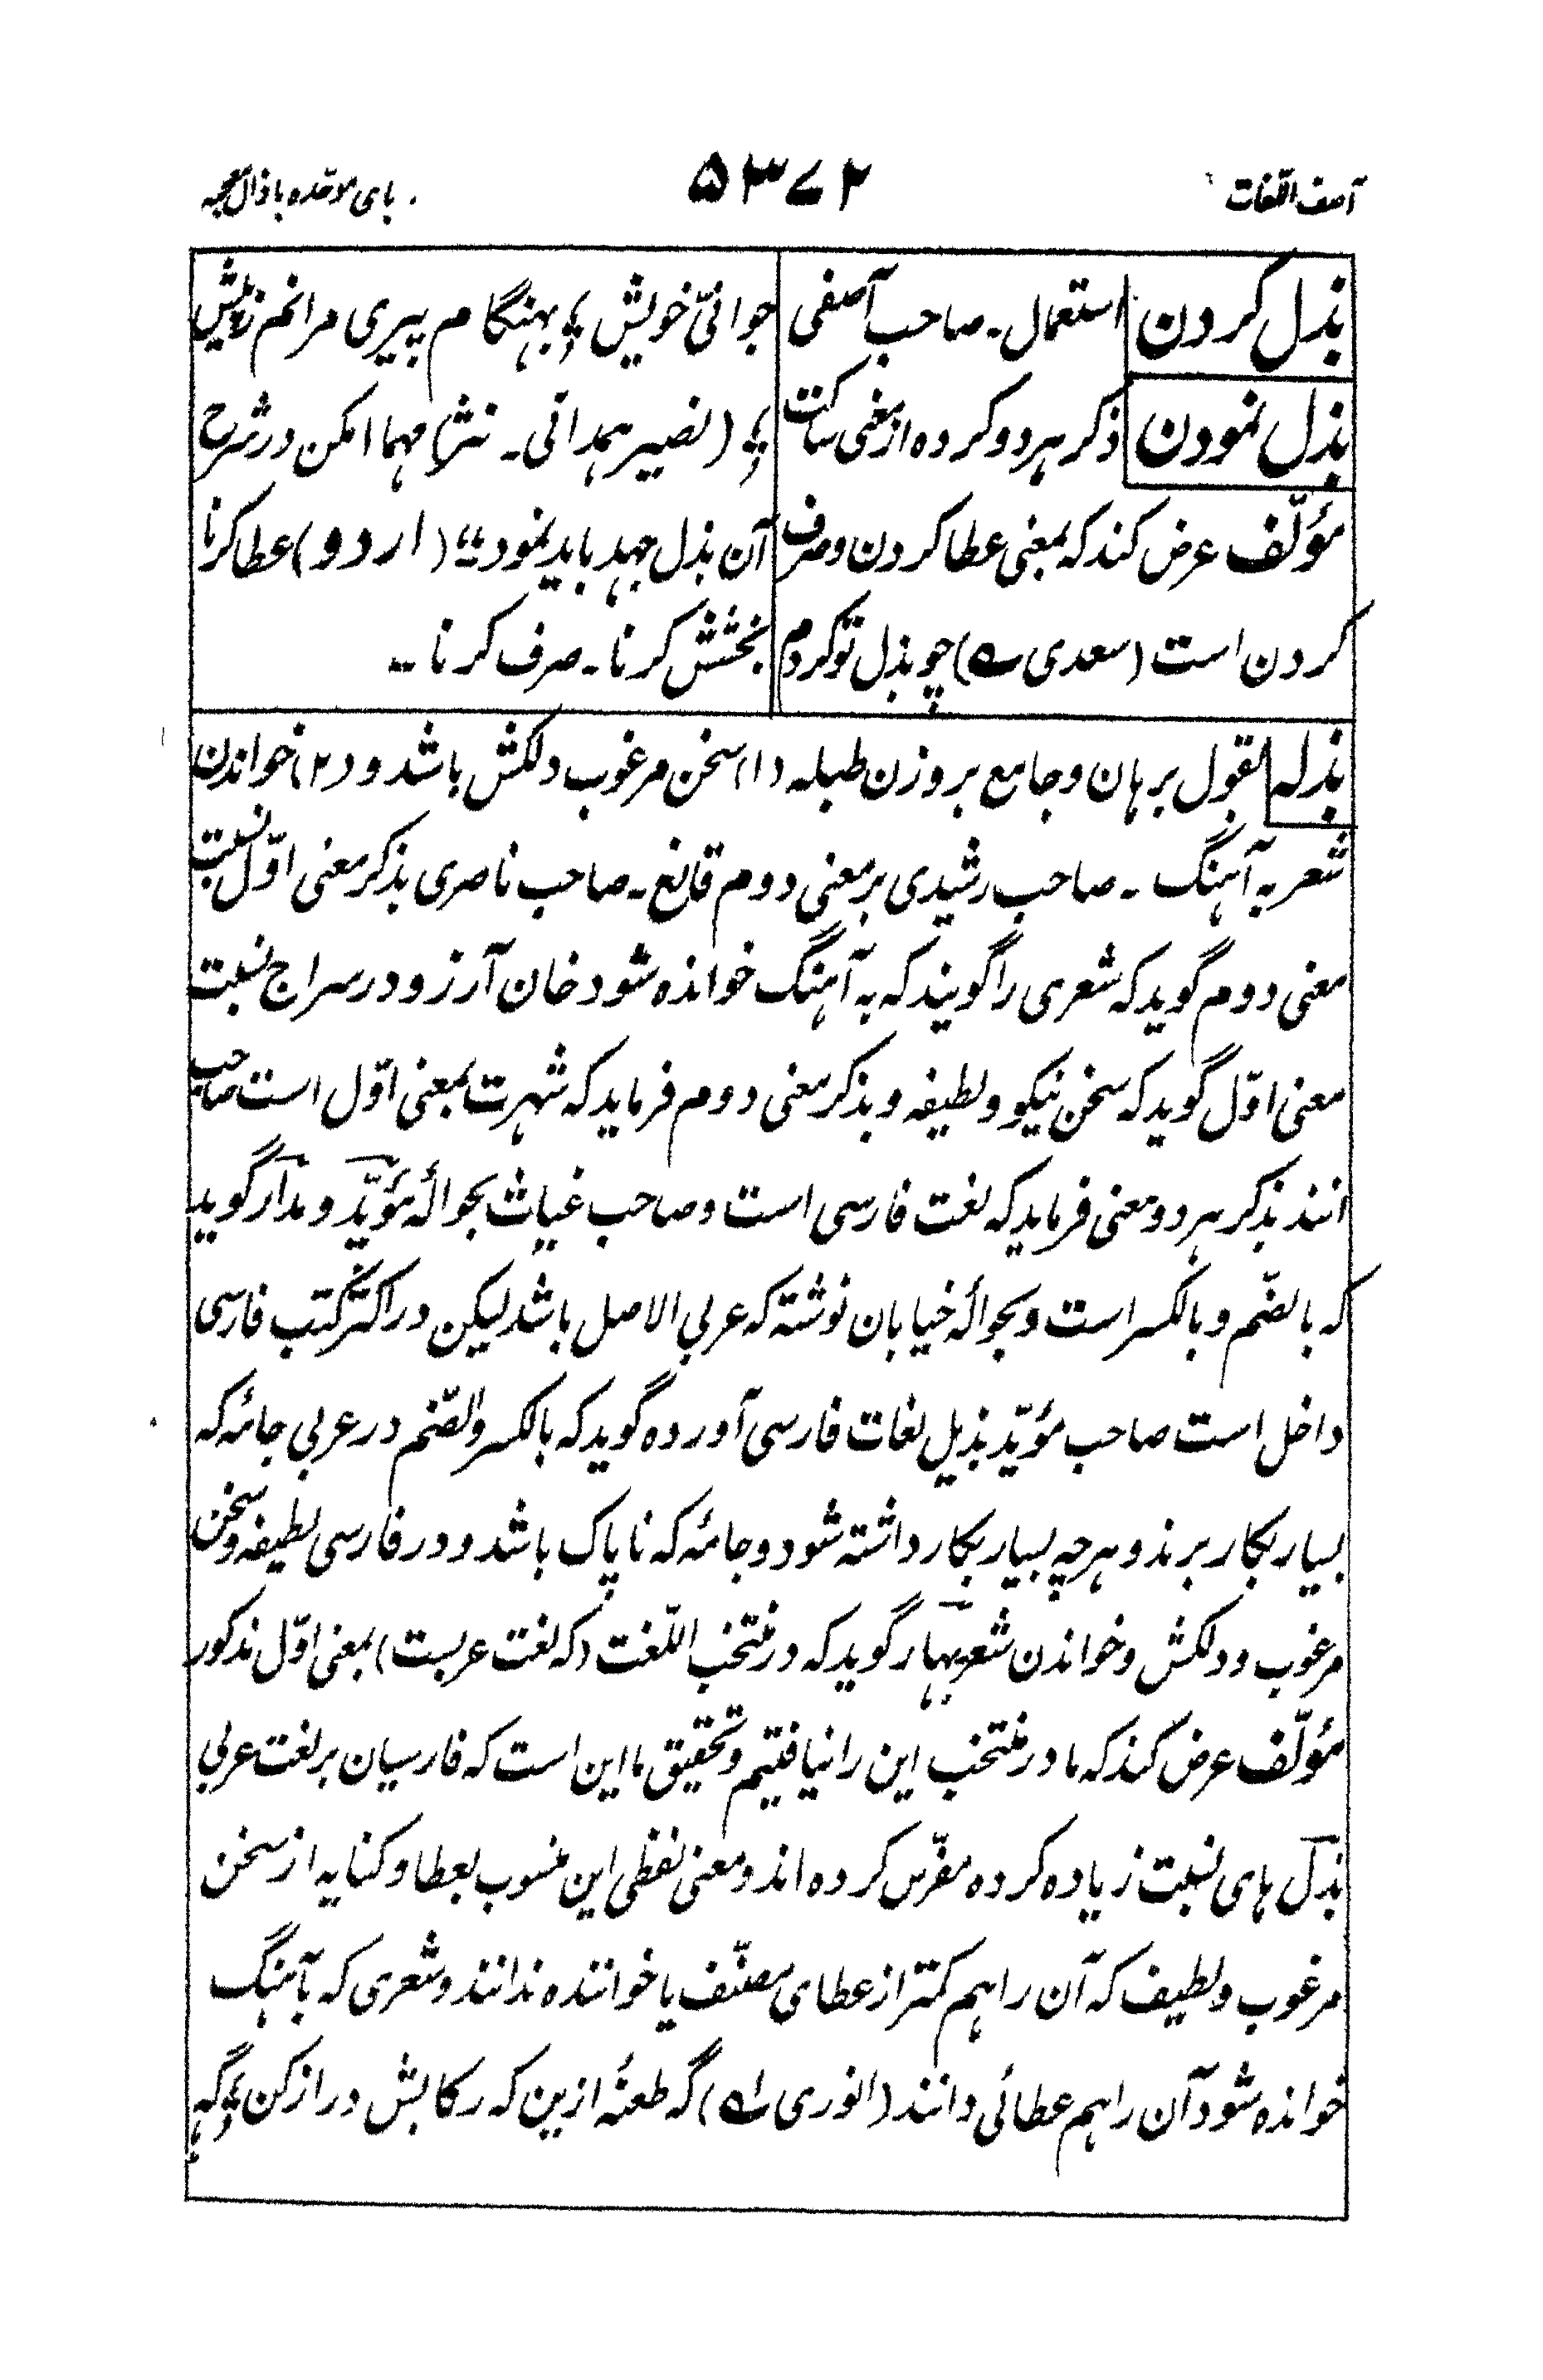 آصف اللّغات
۵۳۷۲
بای موحّده با ذال معجمه
بذل کردن استعمال ۔ صاحب آصفی
بذل نمودن ذکر هر دو کرده از معنی ساکت
مؤلّف عرض کند که بمعنی عطا کردن و صرف
کردن است (سعدی ؎) چو بذل تو کردم
جوانیّ خویش ؛ بهنگام پیری مرانم ز پیش
؛ (نصیر همدانی ۔ نثر) مهما امکن در شرح
آن بذل جهد باید نمود ؛؛ (اردو) عطا کرنا
بخشش کرنا ۔ صرف کرنا ۔۔
بذله بقول برهان و جامع بر وزن طبله (۱) سخن مرغوب دلکش باشد و (۲) خواندن
شعر به آهنگ ۔ صاحب رشیدی بر معنی دوم قانع ۔ صاحب ناصری بذکر معنی اوّل نسبت
معنی دوم گوید که شعری را گویند که به آهنگ خوانده شود خان آرزو در سراج نسبت
معنی اوّل گوید که سخن نیکو و لطیفه و بذکر معنی دوم فرماید که شهرت بمعنی اوّل است صاحب
انند بذکر هر دو معنی فرماید که لغت فارسی است و صاحب غیاث بحوالهٔ مؤیّد و مدار گوید
که بالضّم و بالکسر است و بحوالهٔ خیابان نوشته که عربی الاصل باشد لیکن در اکثر کتب فارسی
داخل است صاحب مؤیّد بذیل لغات فارسی آورده گوید که بالکسر و الضّم در عربی جامهٔ که
بسیار بکار برند و هر چه بسیار بکار داشته شود و جامهٔ که ناپاک باشد و در فارسی لطیفه و سخن
مرغوب و دلکش و خواندن شعر بهار گوید که در منتخب اللّغت (که لغت عربست) بمعنی اوّل مذکور
مؤلّف عرض کند که ما در منتخب این را نیافتیم و تحقیق ما این است که فارسیان بر لغت عربی
بذل های نسبت زیاده کرده مفرّس کرده اند و معنی لفظی این منسوب بعطا و کنایه از سخن
مرغوب و لطیف که آن را هم کمتر از عطای مصنّف یا خواننده ندانند و شعری که بآهنگ
خوانده شود آن را هم عطائی دانند (انوری ؎) گه طعنهٔ ازین که رکابش دراز کن ؛ گه